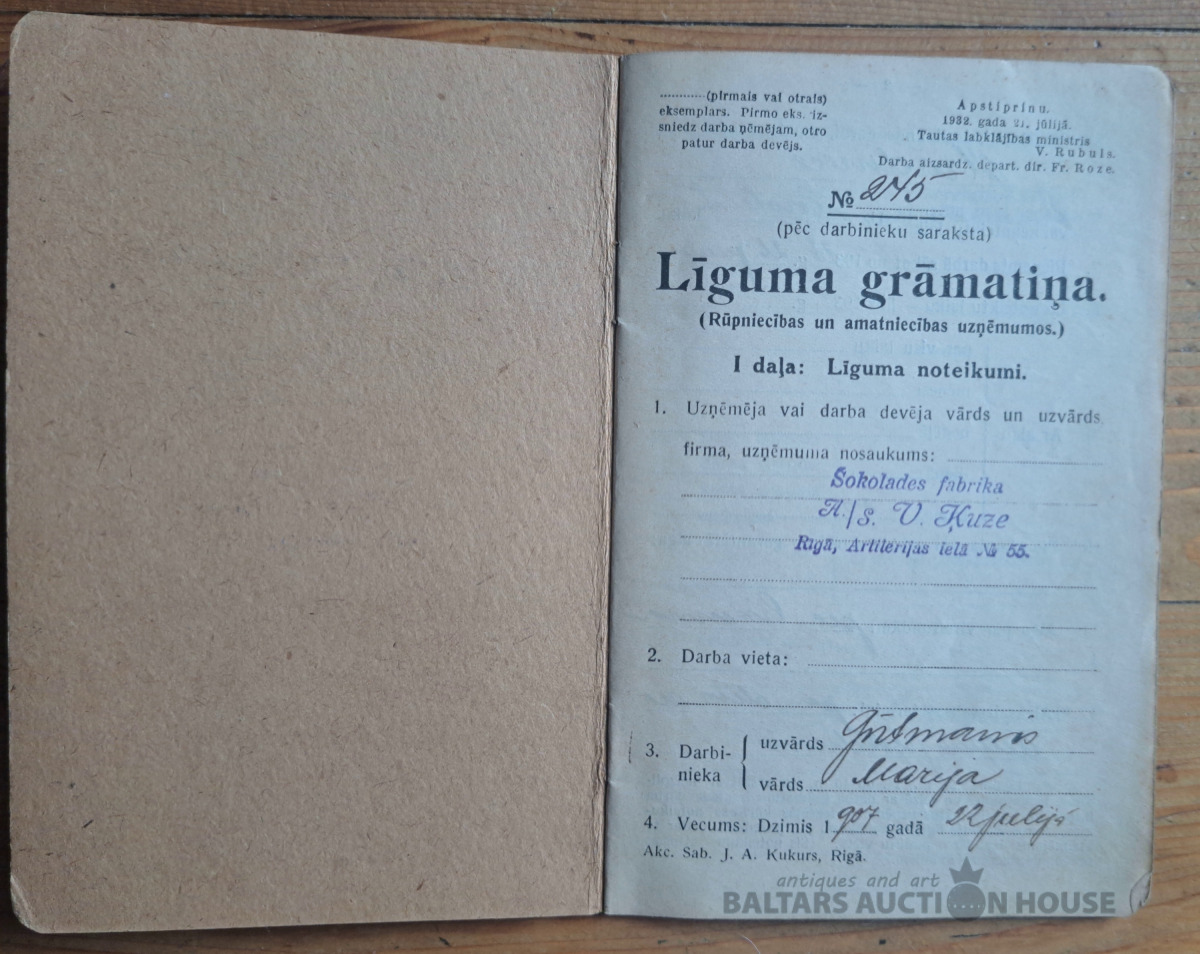 ............(pirmais vai otrais)
eksemplars. Pirmo eks. iz-
sniedz darba ņēmējam, otro
patur darba devējs.
Apstiprinu.
1932. gada 21. jūlijā.
Tautas labklājības ministris
V. Rubuls.
Darba aizsardz. depart. dir. Fr. Roze.
№ 245
(pēc darbinieku saraksta)
Līguma grāmatiņa.
(Rūpniecības un amatniecības uzņēmumos.)
I daļa: Līguma noteikumi.
1. Uzņēmēja vai darba devēja vārds un uzvārds
firma, uzņēmuma nosaukums:
Šokolades fabrika
A./s. V. Ķuze
Rīgā, Artilerijas ielā № 55.
2. Darba vieta:
3. Darbi-
nieka
uzvārds Gūtmanis
vārds Marija
4. Vecums: Dzimis 1907 gadā 22 julijā
Akc. Sab. J. A. Kukurs, Rīgā.
antiques and art
BALTARS AUCTION HOUSE